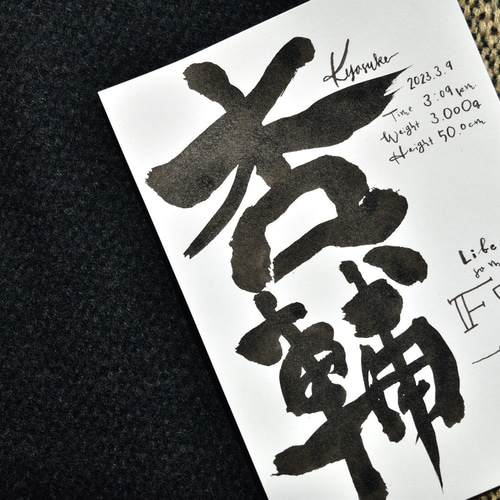 杏輔
Kyosuke
2023.3.9
Time 3:09 pm
Weight 3.000g
Height 50.0cm